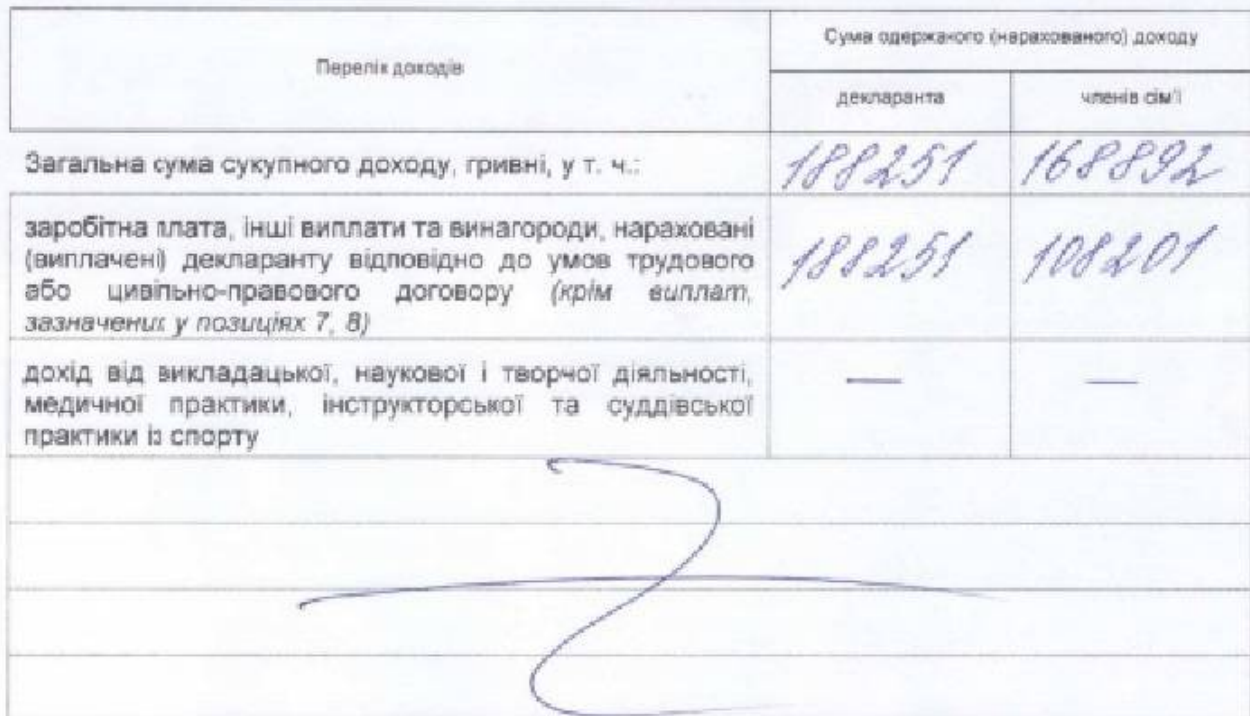 Перелік доходів
Сума одержаного (нарахованого) доходу
декларанта
членів сім'ї
Загальна сума сукупного доходу, гривні, у т. ч.:
188251
168892
заробітна плата, інші виплати та винагороди, нараховані
(виплачені) декларанту відповідно до умов трудового
або цивільно-правового договору (крім виплат,
зазначених у позиціях 7, 8)
188251
108201
дохід від викладацької, наукової і творчої діяльності,
медичної практики, інструкторської та суддівської
практики із спорту
—
—